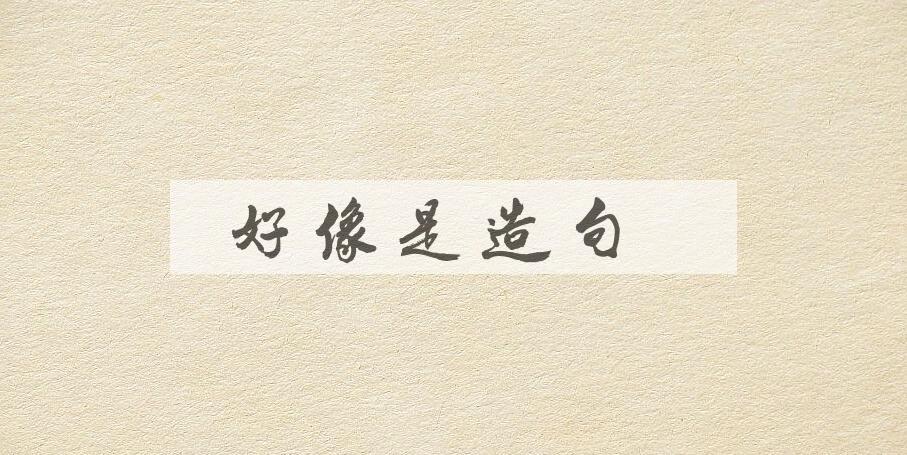 好像是造句